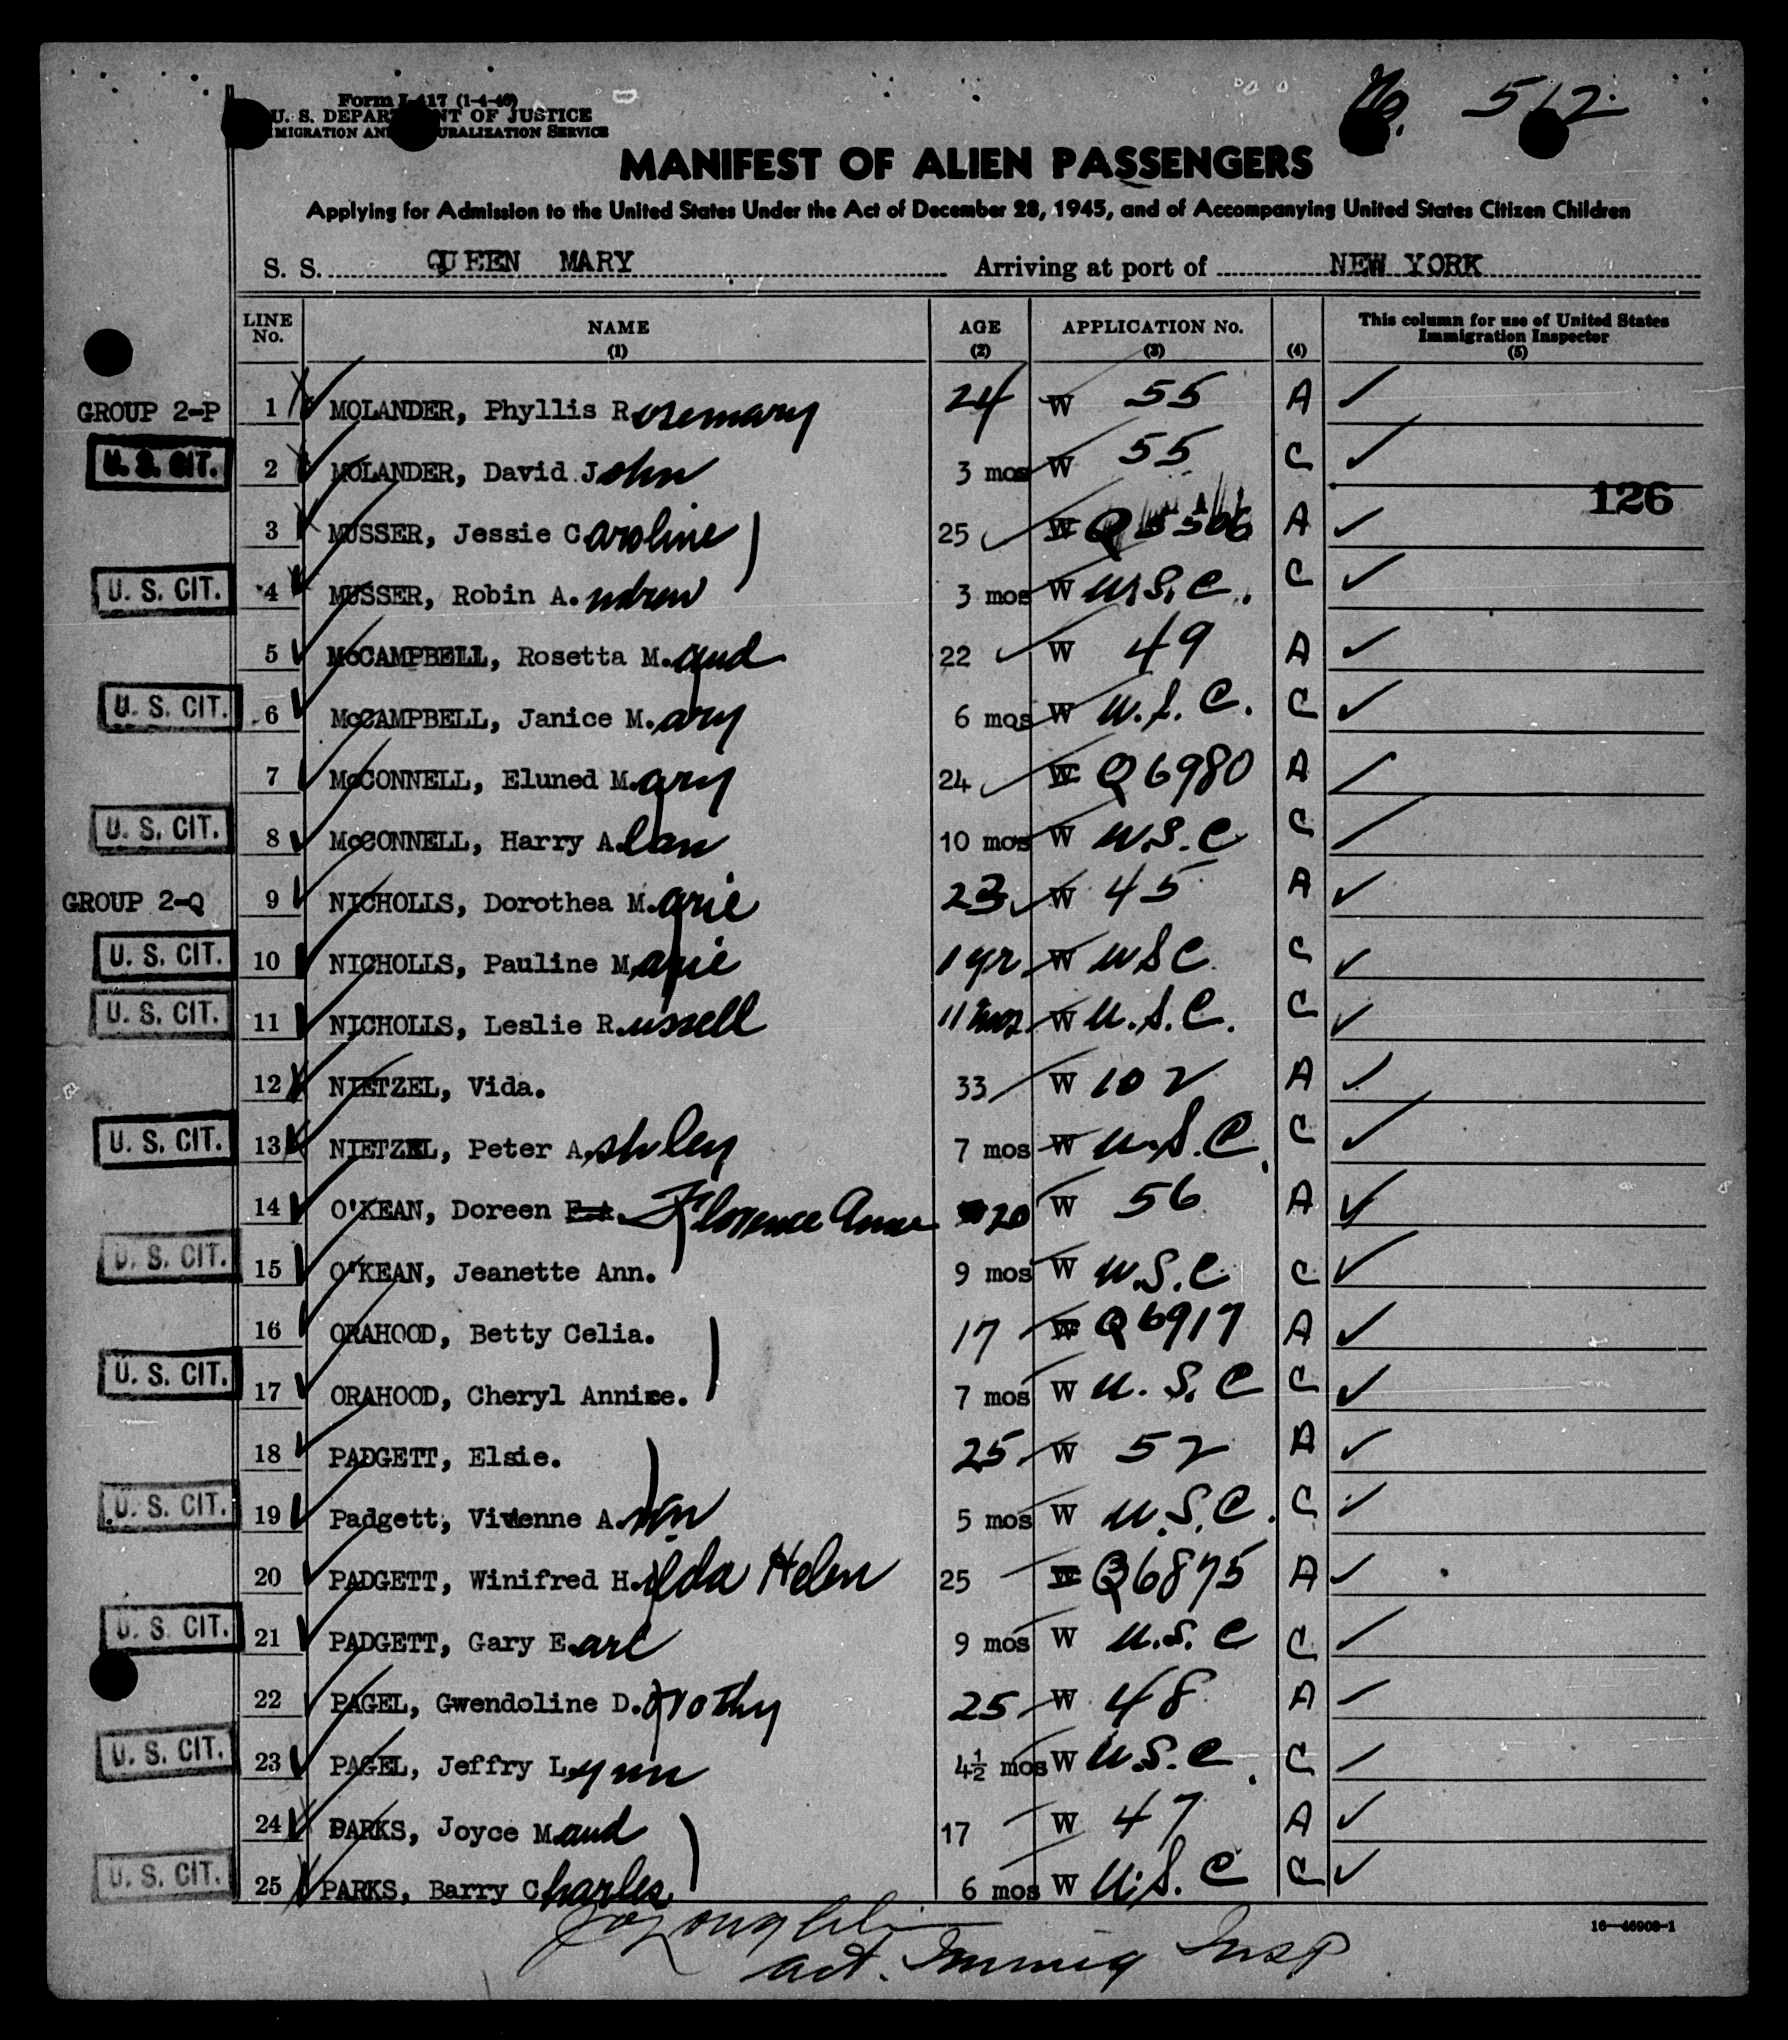 Form I-417 (1-4-46)
U. S. DEPARTMENT OF JUSTICE
IMMIGRATION AND NATURALIZATION SERVICE
No. 512
MANIFEST OF ALIEN PASSENGERS
Applying for Admission to the United States Under the Act of December 28, 1945, and of Accompanying United States Citizen Children
S. S. QUEEN MARY Arriving at port of NEW YORK
LINE No. NAME (1) AGE (2) APPLICATION No. (3) (4) This column for use of United States Immigration Inspector (5)
GROUP 2-P 1 MOLANDER, Phyllis Rosemary 24 W 55 A
U. S. CIT. 2 MOLANDER, David John 3 mos W 55 C
126
3 MUSSER, Jessie Caroline 25 W Q 5506 A
U. S. CIT. 4 MUSSER, Robin A.ndrew 3 mos W U.S.C. C
5 McCAMPBELL, Rosetta M.aud 22 W 49 A
U. S. CIT. 6 McCAMPBELL, Janice M.ary 6 mos W U.S.C. C
7 McCONNELL, Eluned M.ary 24 W Q6980 A
U. S. CIT. 8 McCONNELL, Harry A.lan 10 mos W U.S.C C
GROUP 2-Q 9 NICHOLLS, Dorothea M.arie 23 W 45 A
U. S. CIT. 10 NICHOLLS, Pauline M.arie 1 yr W USC C
U. S. CIT. 11 NICHOLLS, Leslie R.ussell 11 mos W U.S.C. C
12 NIETZEL, Vida. 33 W 102 A
U. S. CIT. 13 NIETZEL, Peter A.shley 7 mos W U.S.C. C
14 O'KEAN, Doreen F.A. Florence Anne 20 W 56 A
U. S. CIT. 15 O'KEAN, Jeanette Ann. 9 mos W U.S.C C
16 ORAHOOD, Betty Celia. 17 W Q6917 A
U. S. CIT. 17 ORAHOOD, Cheryl 7 mos W U.S.C C
18 PADGETT, Elsie. 25 W 52 A
U. S. CIT. 19 Padgett, Vivienne A. 5 mos W U.S.C. C
20 PADGETT, Winifred H.ilda Helen 25 W Q6875 A
U. S. CIT. 21 PADGETT, Gary E.arl 9 mos W U.S.C C
22 PAGEL, Gwendoline D.orothy 25 W 48 A
U. S. CIT. 23 PAGEL, Jeffry Lynn 4½ mos W U.S.C. C
24 PARKS, Joyce Maud 17 W 47 A
U. S. CIT. 25 PARKS, Barry Charles 6 mos W U.S.C C
16—46908-1
act. Immig Insp